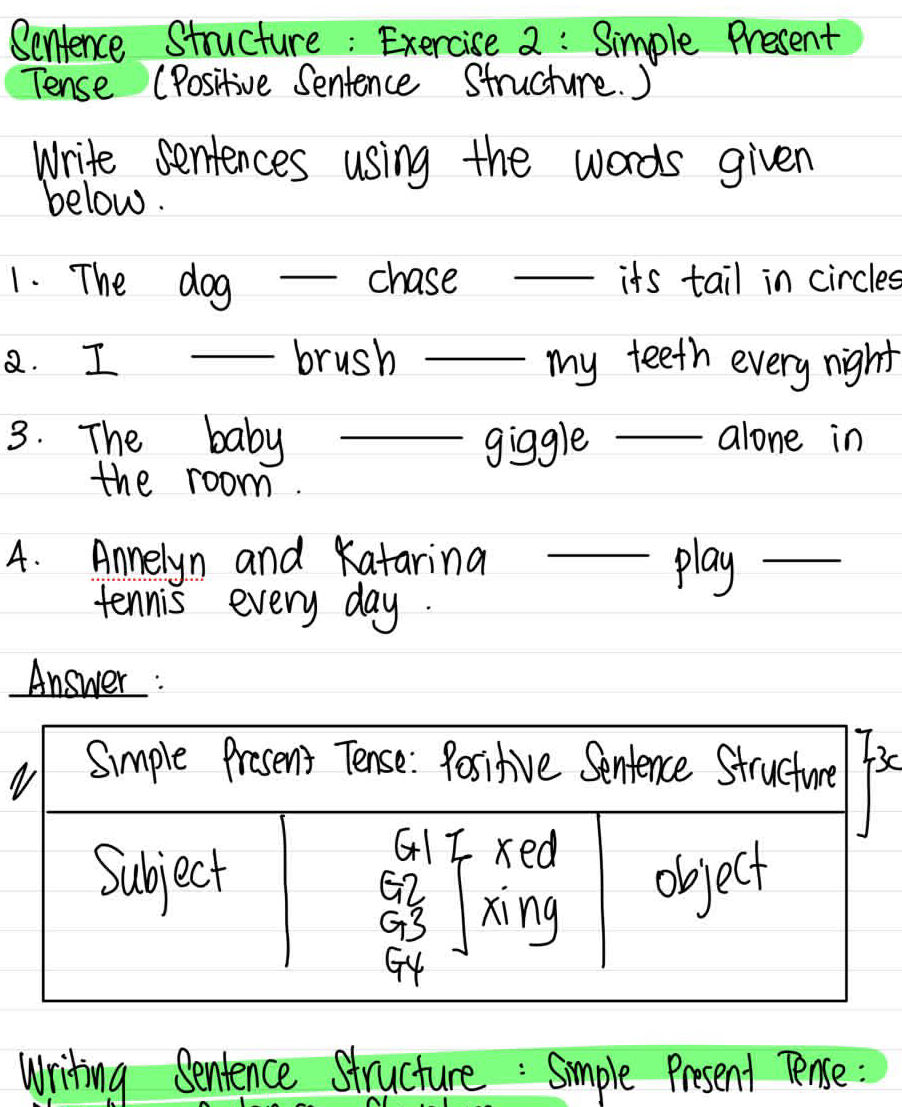 Sentence Structure : Exercise 2 : Simple Present
Tense (Positive Sentence Structure.)
Write sentences using the words given
below.
1. The dog — chase — its tail in circles
2. I — brush — my teeth every night
3. The baby — giggle — alone in
the room.
4. Annelyn and Katarina — play —
tennis every day.
Answer :
Simple Present Tense: Positive Sentence Structure
Subject
G1 xed
G2
G3 xing
G4
object
Writing Sentence Structure : Simple Present Tense: